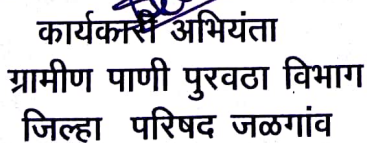 कार्यकारी अभियंता
ग्रामीण पाणी पुरवठा विभाग
जिल्हा परिषद जळगांव